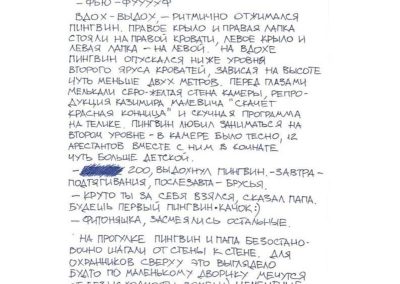 – ФЬЮ – ФУУУУФ
ВДОХ – ВЫДОХ, – РИТМИЧНО ОТЖИМАЛСЯ
ПИНГВИН. ПРАВОЕ КРЫЛО И ПРАВАЯ ЛАПКА
СТОЯЛИ НА ПРАВОЙ КРОВАТИ, ЛЕВОЕ КРЫЛО И
ЛЕВАЯ ЛАПКА – НА ЛЕВОЙ. НА ВДОХЕ
ПИНГВИН ОПУСКАЛСЯ НИЖЕ УРОВНЯ
ВТОРОГО ЯРУСА КРОВАТЕЙ, ЗАВИСАЯ НА ВЫСОТЕ
ЧУТЬ МЕНЬШЕ ДВУХ МЕТРОВ. ПЕРЕД ГЛАЗАМИ
МЕЛЬКАЛИ СЕРО-ЖЕЛТАЯ СТЕНА КАМЕРЫ, РЕПРО-
ДУКЦИЯ КАЗИМИРА МАЛЕВИЧА "СКАЧЕТ
КРАСНАЯ КОННИЦА" И СКУЧНАЯ ПРОГРАММА
НА ТЕЛИКЕ. ПИНГВИН ЛЮБИЛ ЗАНИМАТЬСЯ НА
ВТОРОМ УРОВНЕ – В КАМЕРЕ БЫЛО ТЕСНО, 12
АРЕСТАНТОВ ВМЕСТЕ С НИМ В КОМНАТЕ
ЧУТЬ БОЛЬШЕ ДЕТСКОЙ.
– 200, ВЫДОХНУЛ ПИНГВИН. – ЗАВТРА –
ПОДТЯГИВАНИЯ, ПОСЛЕЗАВТА – БРУСЬЯ.
– КРУТО ТЫ ЗА СЕБЯ ВЗЯЛСЯ, СКАЗАЛ ПАПА.
БУДЕШЬ ПЕРВЫЙ ПИНГВИН-КАЧОК :)
– ФИТОНЯШКА, ЗАСМЕЯЛИСЬ ОСТАЛЬНЫЕ.
НА ПРОГУЛКЕ ПИНГВИН И ПАПА БЕЗОСТАНО-
ВОЧНО ШАГАЛИ ОТ СТЕНЫ К СТЕНЕ. ДЛЯ
ОХРАННИКОВ СВЕРХУ ЭТО ВЫГЛЯДЕЛО
БУДТО ПО МАЛЕНЬКОМУ ДВОРИКУ МЕЧУТСЯ